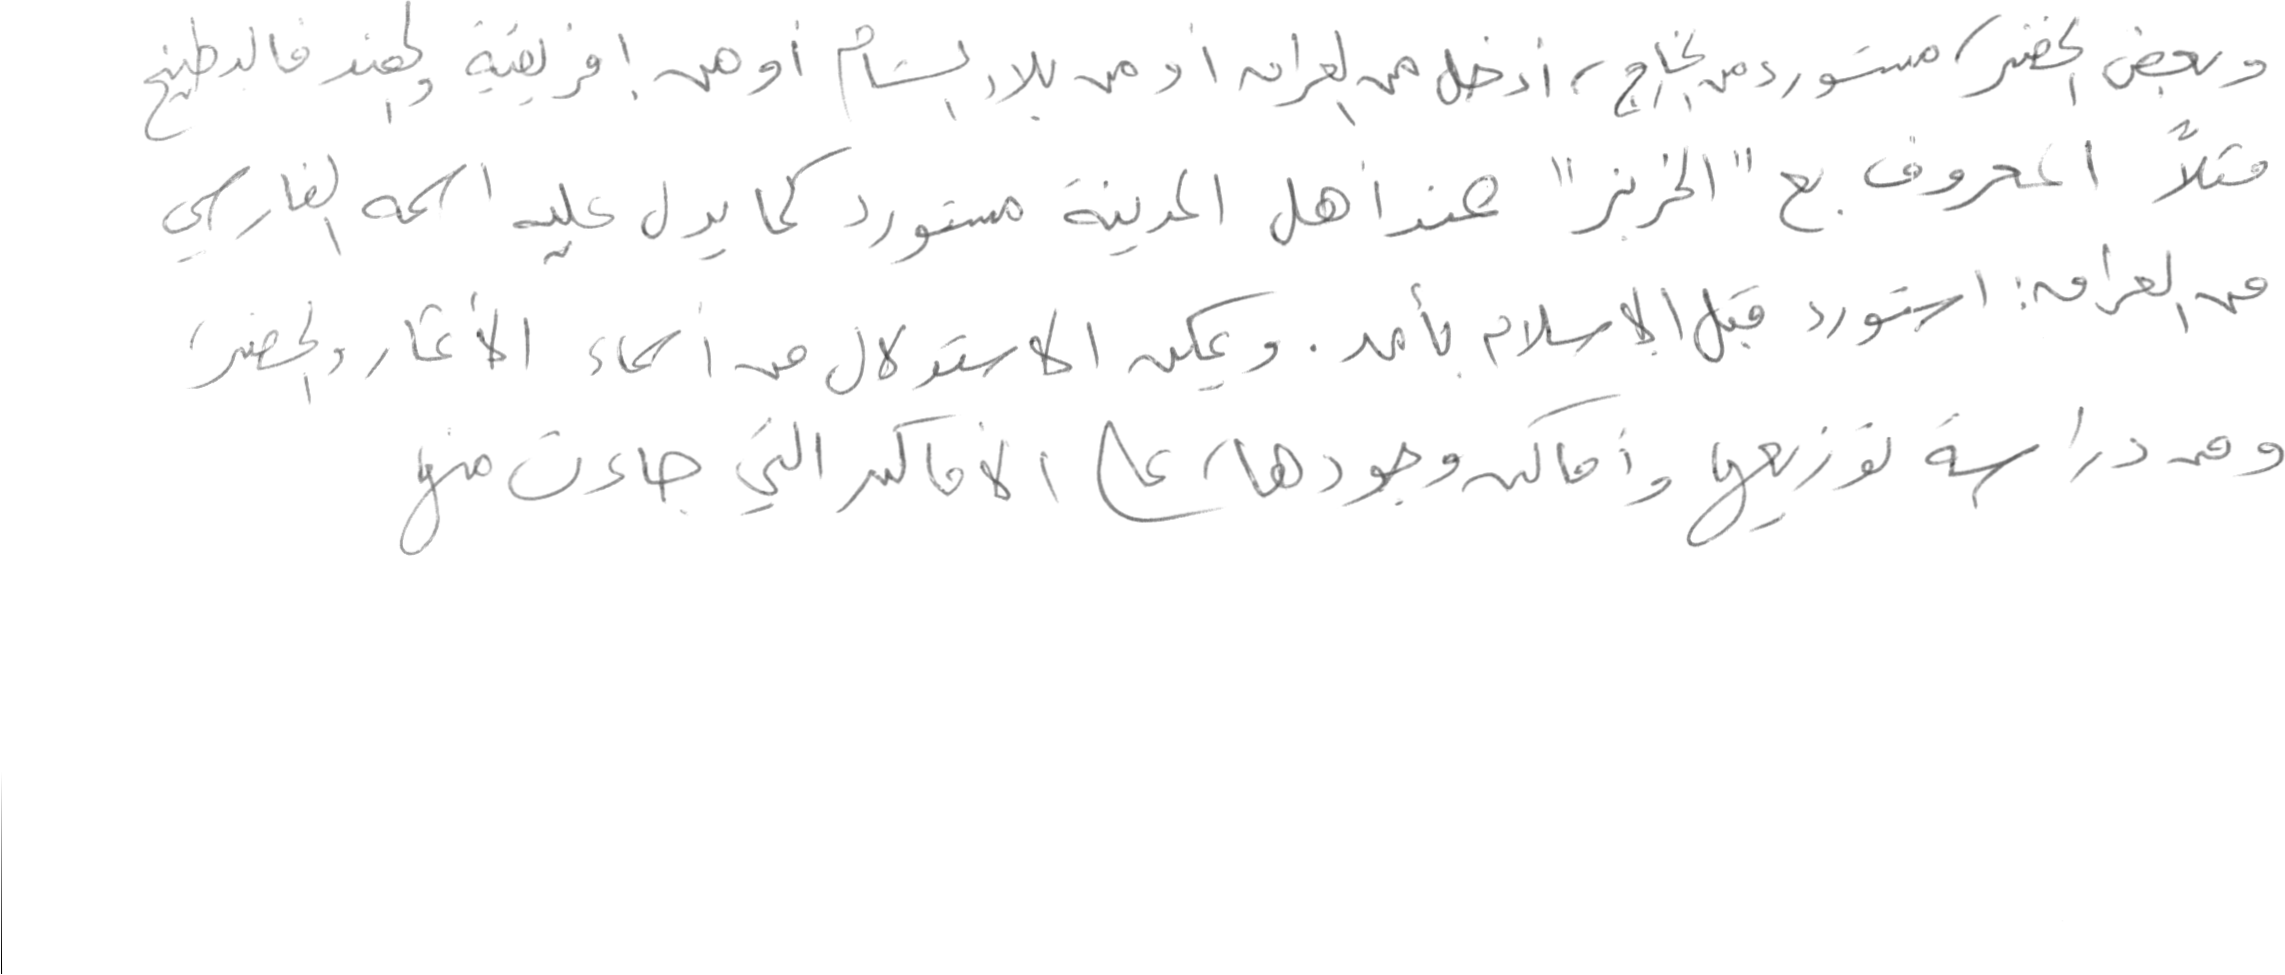 وبعض الخضر، مستورد من الخارج، أدخل من العراق أو من بلاد الشام أو من إفريقية والهند فالبطيخ
مثلاً المعروف بـ "الخربز" عند أهل المدينة مستورد كما يدل عليه اسمه الفارسي
من العراق: استورد قبل الإسلام بأمد. ويمكن الاستدلال من أسماء الأثمار والخضر،
ومن دراسة توزيعها وأماكن وجودها، على الأماكن التي جاءت منها